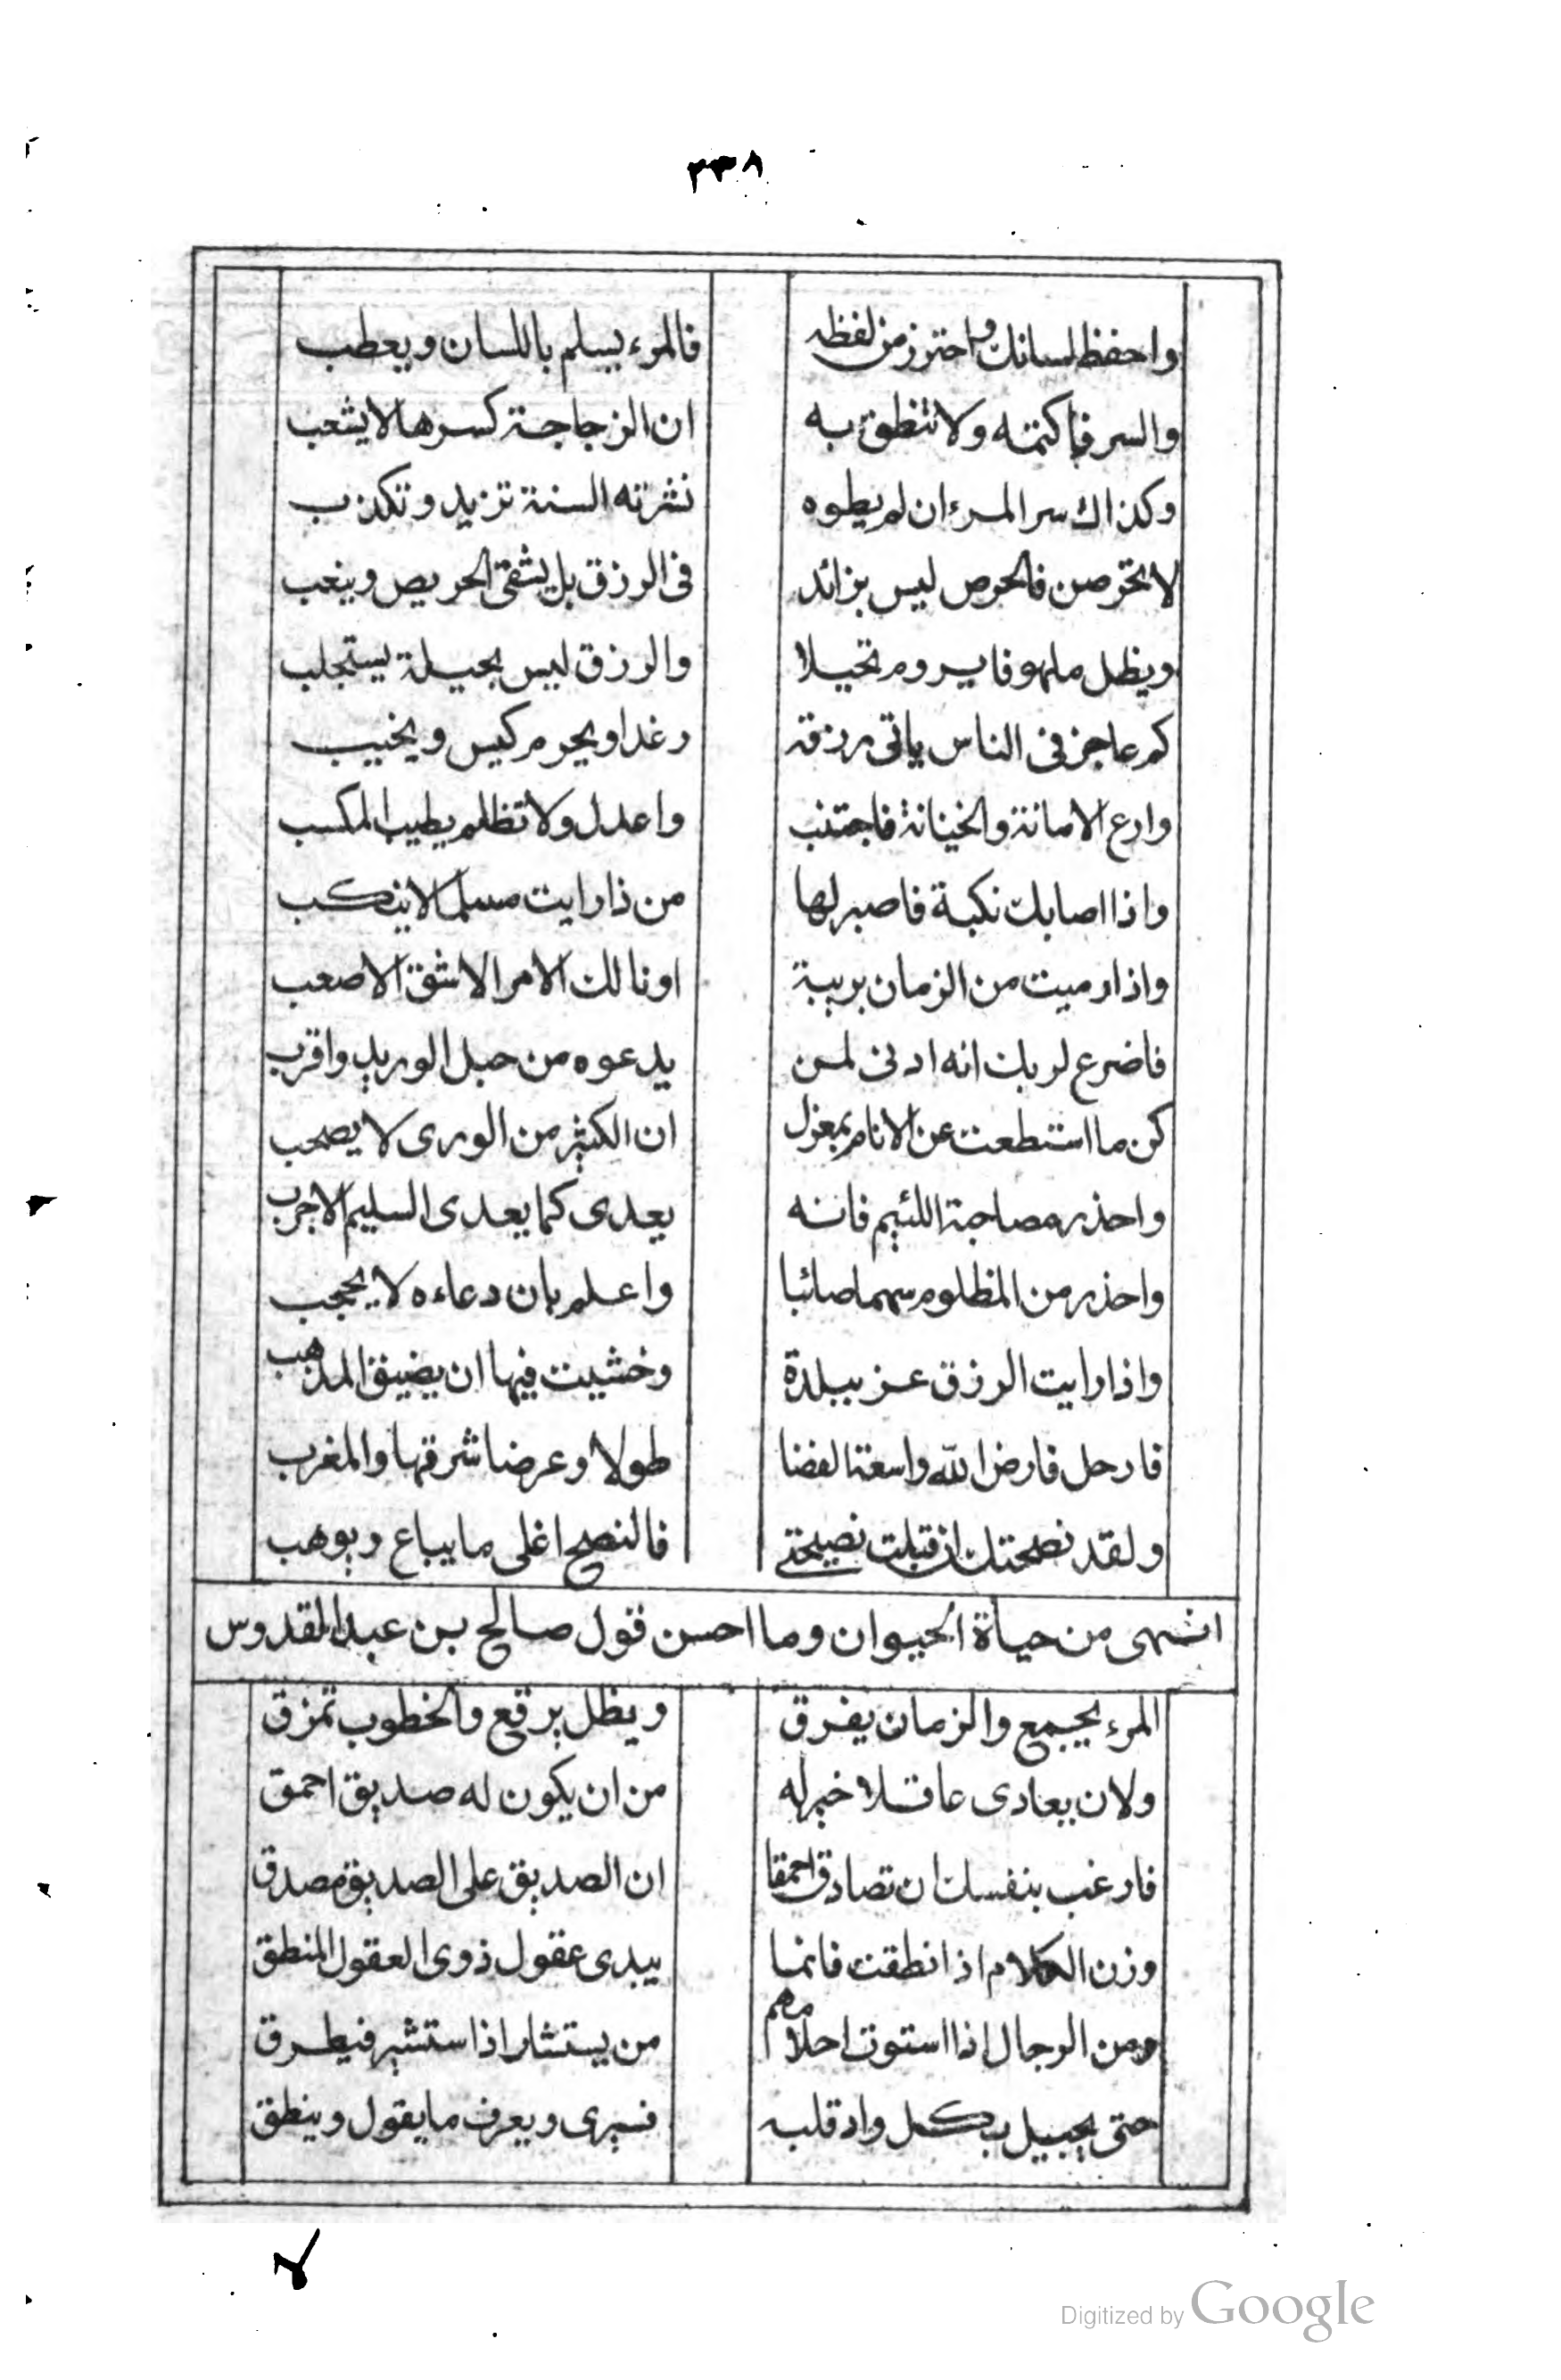 ٢٣٨
واحفظ لسانك واحترز من لفظه فالمرء يسلم باللسان ويعطب
والسر فاكتمه ولا تنطق به ان الزجاجة كسرها لا يشعب
وكذاك سر المرء ان لم يطوه نشرته السنة تزيد وتكذب
لا تحرصن فالحرص ليس بزائد فى الرزق بل يشقى الحريص ويتعب
ويظل ملهوفا يروم تحيلا والرزق ليس بحيلة يستجلب
كم عاجز فى الناس ياتى رزقه رغدا ويحرم كيس ويخيب
وارع الامانة والخيانة فاجتنب واعدل ولا تظلم يطيب المكسب
واذا اصابك نكبة فاصبر لها من ذا رايت مسلما لا ينكب
واذا رميت من الزمان بريبة او نالك الامر الاشق الاصعب
فاضرع لربك انه ادنى لمن يدعوه من حبل الوريد واقرب
كن ما استطعت عن الانام بمعزل ان الكثير من الورى لا يصحب
واحذر مصاحبة اللئيم فانه يعدى كما يعدى السليم الاجرب
واحذر من المظلوم سهما صائبا واعلم بان دعاءه لا يحجب
واذا رايت الرزق عز ببلدة وخشيت فيها ان يضيق المذهب
فارحل فارض الله واسعة الفضا طولا وعرضا شرقها والمغرب
ولقد نصحتك ان قبلت نصيحتى فالنصح اغلى ما يباع ويوهب
انتهى من حياة الحيوان وما احسن قول صالح بن عبد القدوس
المرء يجمع والزمان يفرق ويظل يرقع والخطوب تمزق
ولان يعادى عاقلا خير له من ان يكون له صديق احمق
فارغب بنفسك ان تصادق احمقا ان الصديق على الصديق مصدق
وزن الكلام اذا نطقت فانما يبدى عقول ذوى العقول المنطق
ومن الرجال اذا استوت احلامهم من يستشار اذا استشير فيطرق
حتى يجيل بكل واد قلبه فيرى ويعرف ما يقول وينطق
Digitized by Google